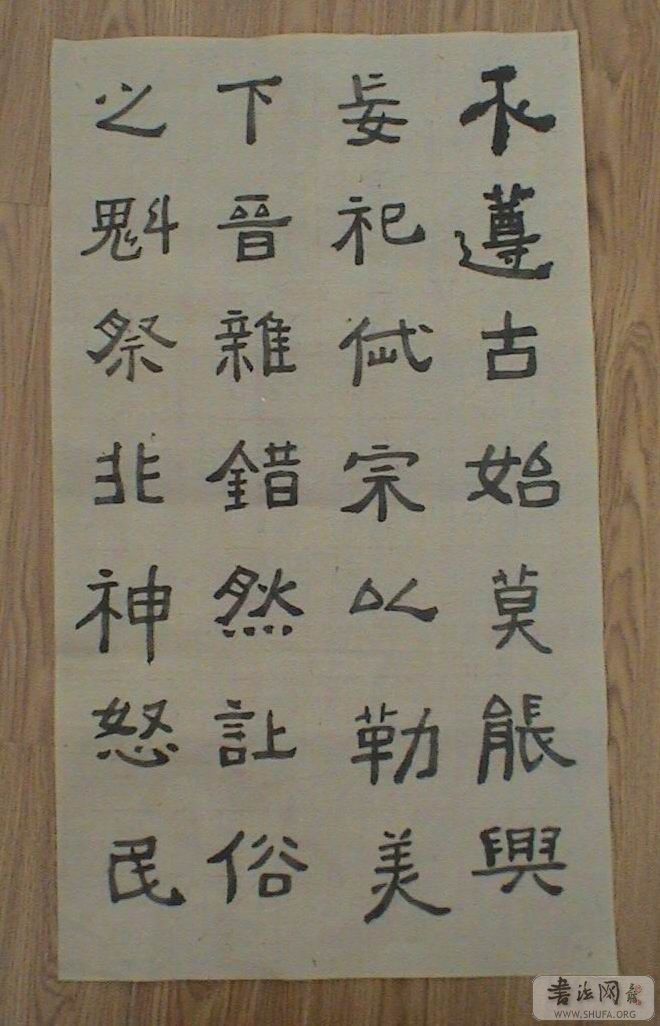 不遵古始莫能興
妄祀岱宗以勒美
下晉雜錯然訟俗
之魁祭非神怒民
書法网
WWW.SHUFA.ORG